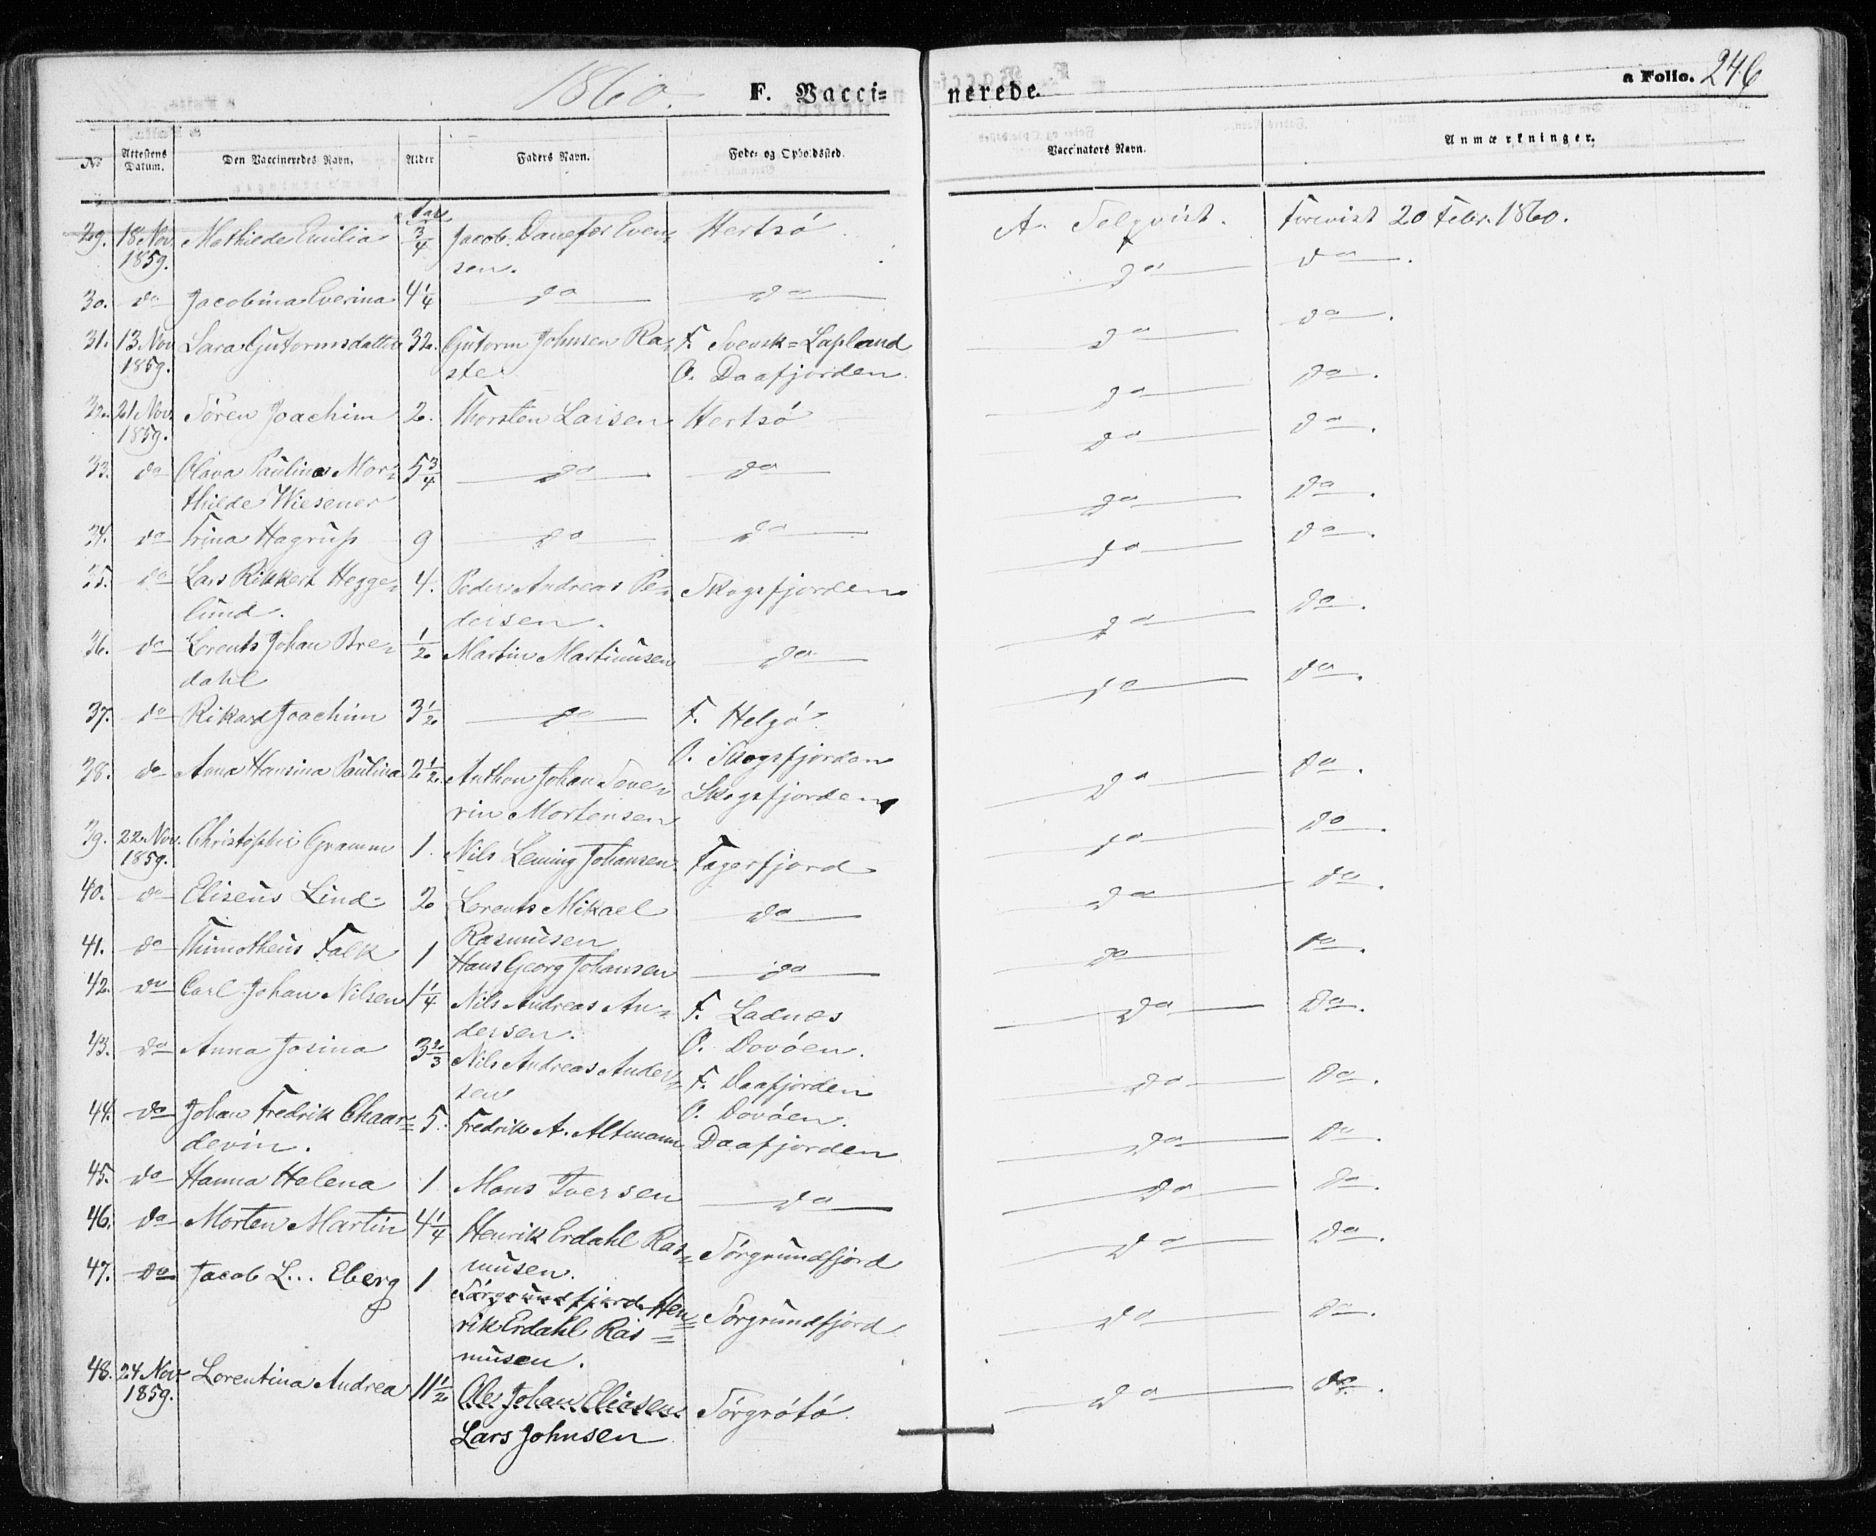 1860. F. Vacci= nerede. a Folio. 246
No Attestens Datum. Den Vaccineredes Navn. Alder Faders Navn. Føde- og Opholdssted. Vaccinators Navn. Anmærkninger.
29. 18 Nov. Mathilde Emilia 3/4 Jacob Danefer Even= Hertsö A. Forevist 20 Febr. 1860.
1859. sen.
30. do Jacobina Everina 4 1/4 do do do do.
31. 13 Nov Sara Gutormsdatter 32. Gutorm Johnsen Ra= F. Svensk=Lapland do do.
1859. ste O. Daafjorden.
32. 21 Nov. Sören Joachim 2. Thorsten Larsen Hertsö do do.
1859.
33. do Olava Paulina Mor= 5 3/4 do do do do.
thilde Wiesener
34. do Trina Hagrup 9 do do do do.
35. do Lars Rikkert Hegge= 4. Peder Andreas Pe= Skogsfjorden do do.
lund. dersen.
36. do Lorents Johan Bre= 1/2 Martin Martinusen do do do.
dahl
37. do Rikard Joachim 3 1/2 do F. Helgö do do.
O. Skogsfjorden
38. do Anna Hansina Paulina 2 1/2 Anthon Johan Seve= Skogsfjorden do do.
rin Mortensen
39. 22 Nov. Christopher Gramm 1. Nils Leming Johansen Fagerfjord do do.
1859.
40. do Eliseus Lind 2 Lorents Mikael do do do.
Rasmusen
41. do Thimotheus Falk 1 Hans Georg Johansen do do do.
42. do Carl Johan Nilsen 1 1/4 Nils Andreas An= F. Ladnæs do do.
dersen. O. Dovöen.
43. do Anna Josina 3 2/3 Nils Andreas Ander= F. Daafjorden do do.
sen O. Dovöen.
44. do Johan Fredrik Chaar= 5. Fredrik A. Altmann Daafjorden do do.
devin.
45. do Hanna Helena 1 Mons Iversen do do do.
46. do Morten Martin 4 1/4 Henrik Erdahl Ras= Sörgrundfjord do do.
musen.
47. do Jacob L... Eberg 1 Sörgrundfjord Hen= Sörgrundfjord do do.
rik Erdahl Ras=
musen.
48. 24 Nov. Lorentina Andrea 11 1/2 Ole Johan Eliasen do do.
1859. Lars Johnsen